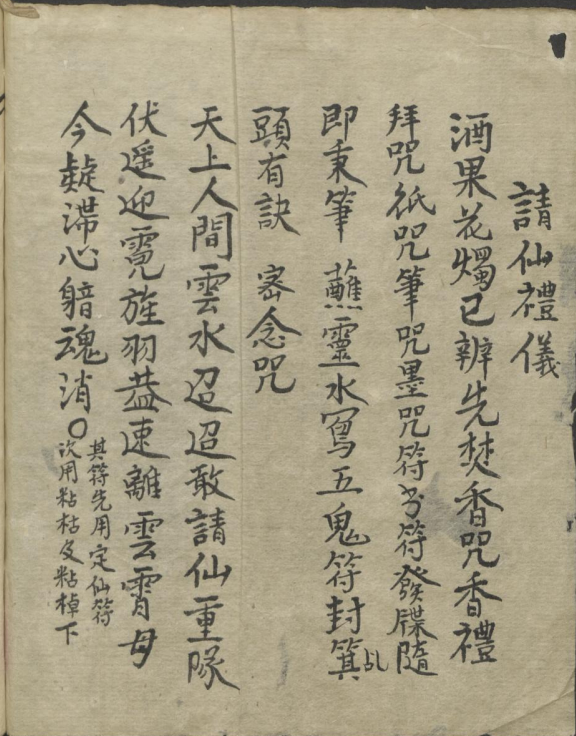 請仙禮儀
酒果花燭已辨先焚香咒香禮
拜咒紙咒筆咒墨咒符書符發牒隨
即秉筆 蘸靈水寫五鬼符封箕乩
頭有訣 宻念咒
天上人間雲水迢迢敢請仙重隊
伏遥迎霓旌羽葢速離雲霄毋
今疑滞心暗魂消〇
其符先用定仙符
次用粘枯及粘棹下